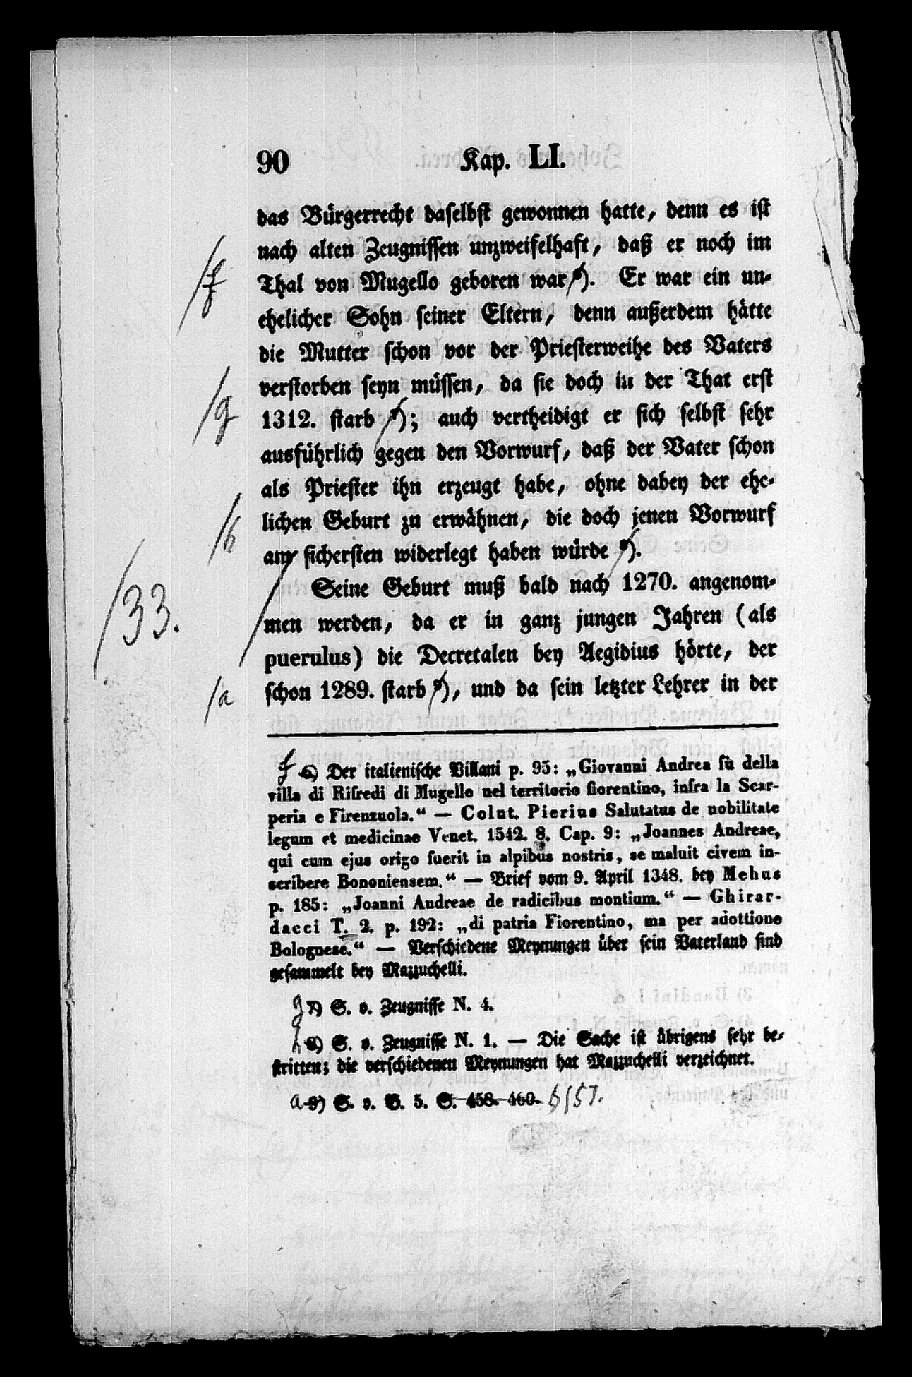 90 Kap. LI.
das Bürgerrecht daselbst gewonnen hatte, denn es ist
nach alten Zeugnissen unzweifelhaft, daß er noch im
/f Thal von Mugello geboren war ⁶). Er war ein un-
ehelicher Sohn seiner Eltern, denn außerdem hätte
die Mutter schon vor der Priesterweihe des Vaters
verstorben seyn müssen, da sie doch in der That erst
/g 1312. starb ⁷); auch vertheidigt er sich selbst sehr
ausführlich gegen den Vorwurf, daß der Vater schon
als Priester ihn erzeugt habe, ohne dabey der ehe-
/h lichen Geburt zu erwähnen, die doch jenen Vorwurf
am sichersten widerlegt haben würde ⁸).
/33. Seine Geburt muß bald nach 1270. angenom-
men werden, da er in ganz jungen Jahren (als
puerulus) die Decretalen bey Aegidius hörte, der
/a schon 1289. starb ⁹), und da sein letzter Lehrer in der
f 6) Der italienische Villani p. 95: „Giovanni Andrea fù della
villa di Rifredi di Mugello nel territorio fiorentino, infra la Scar-
peria e Firenzuola.“ — Colut. Pierius Salutatus de nobilitate
legum et medicinae Venet. 1542. 8. Cap. 9: „Joannes Andreae,
qui cum ejus origo fuerit in alpibus nostris, se maluit civem in-
scribere Bononiensem.“ — Brief vom 9. April 1348. bey Mehus
p. 185: „Joanni Andreae de radicibus montium.“ — Ghirar-
dacci T. 2. p. 192: „di patria Fiorentino, ma per adottione
Bolognese.“ — Verschiedene Meynungen über sein Vaterland sind
gesammelt bey Mazzuchelli.
g 7) S. o. Zeugnisse N. 4.
h 8) S. o. Zeugnisse N. 1. — Die Sache ist übrigens sehr be-
stritten; die verschiedenen Meynungen hat Mazzuchelli verzeichnet.
a 9) S. o. B. 5. S. 458. 460. §157.